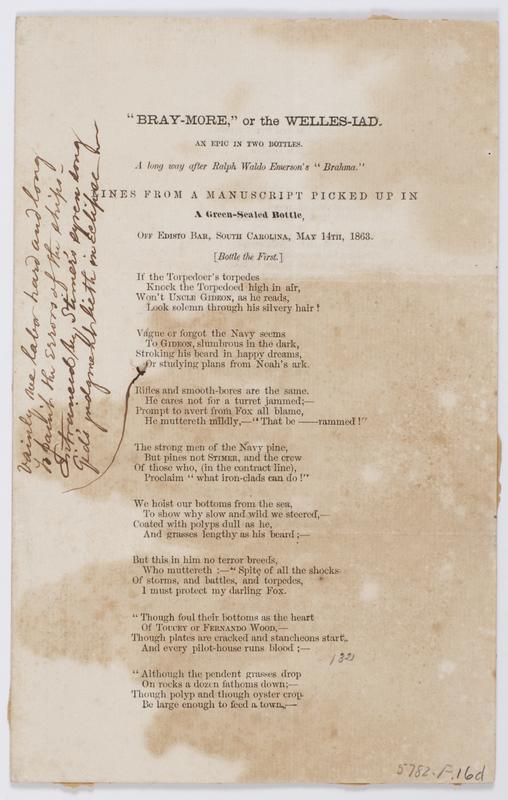 "BRAY-MORE," or the WELLES-IAD.
AN EPIC IN TWO BOTTLES.
A long way after Ralph Waldo Emerson's "Brahma."
INES FROM A MANUSCRIPT PICKED UP IN
A Green-Sealed Bottle,
OFF EDISTO BAR, SOUTH CAROLINA, MAY 14TH, 1863.
[Bottle the First.]
If the Torpedoer's torpedes
Knock the Torpedoed high in air,
Won't UNCLE GIDEON, as he reads,
Look solemn through his silvery hair!
Vague or forgot the Navy seems
To GIDEON, slumbrous in the dark,
Stroking his beard in happy dreams,
Or studying plans from Noah's ark.
Rifles and smooth-bores are the same.
He cares not for a turret jammed;—
Prompt to avert from Fox all blame,
He muttereth mildly,—"That be ——rammed!"
The strong men of the Navy pine,
But pines not STIMER, and the crew
Of those who, (in the contract line),
Proclaim "what iron-clads can do!"
We hoist our bottoms from the sea,
To show why slow and wild we steered,—
Coated with polyps dull as he,
And grasses lengthy as his beard;—
But this in him no terror breeds,
Who muttereth:—"Spite of all the shocks
Of storms, and battles, and torpedes,
I must protect my darling Fox.
"Though foul their bottoms as the heart
Of TOUCEY or FERNANDO WOOD,—
Though plates are cracked and stancheons start,
And every pilot-house runs blood;—
"Although the pendent grasses drop
On rocks a dozen fathoms down;—
Though polyp and though oyster crop
Be large enough to feed a town,—
Vainly we labor hard and long
To paint the errors of the ships—
Entranced by Stimer's syren song
Gid's judgment lieth in eclipse
132
5782.F.16d